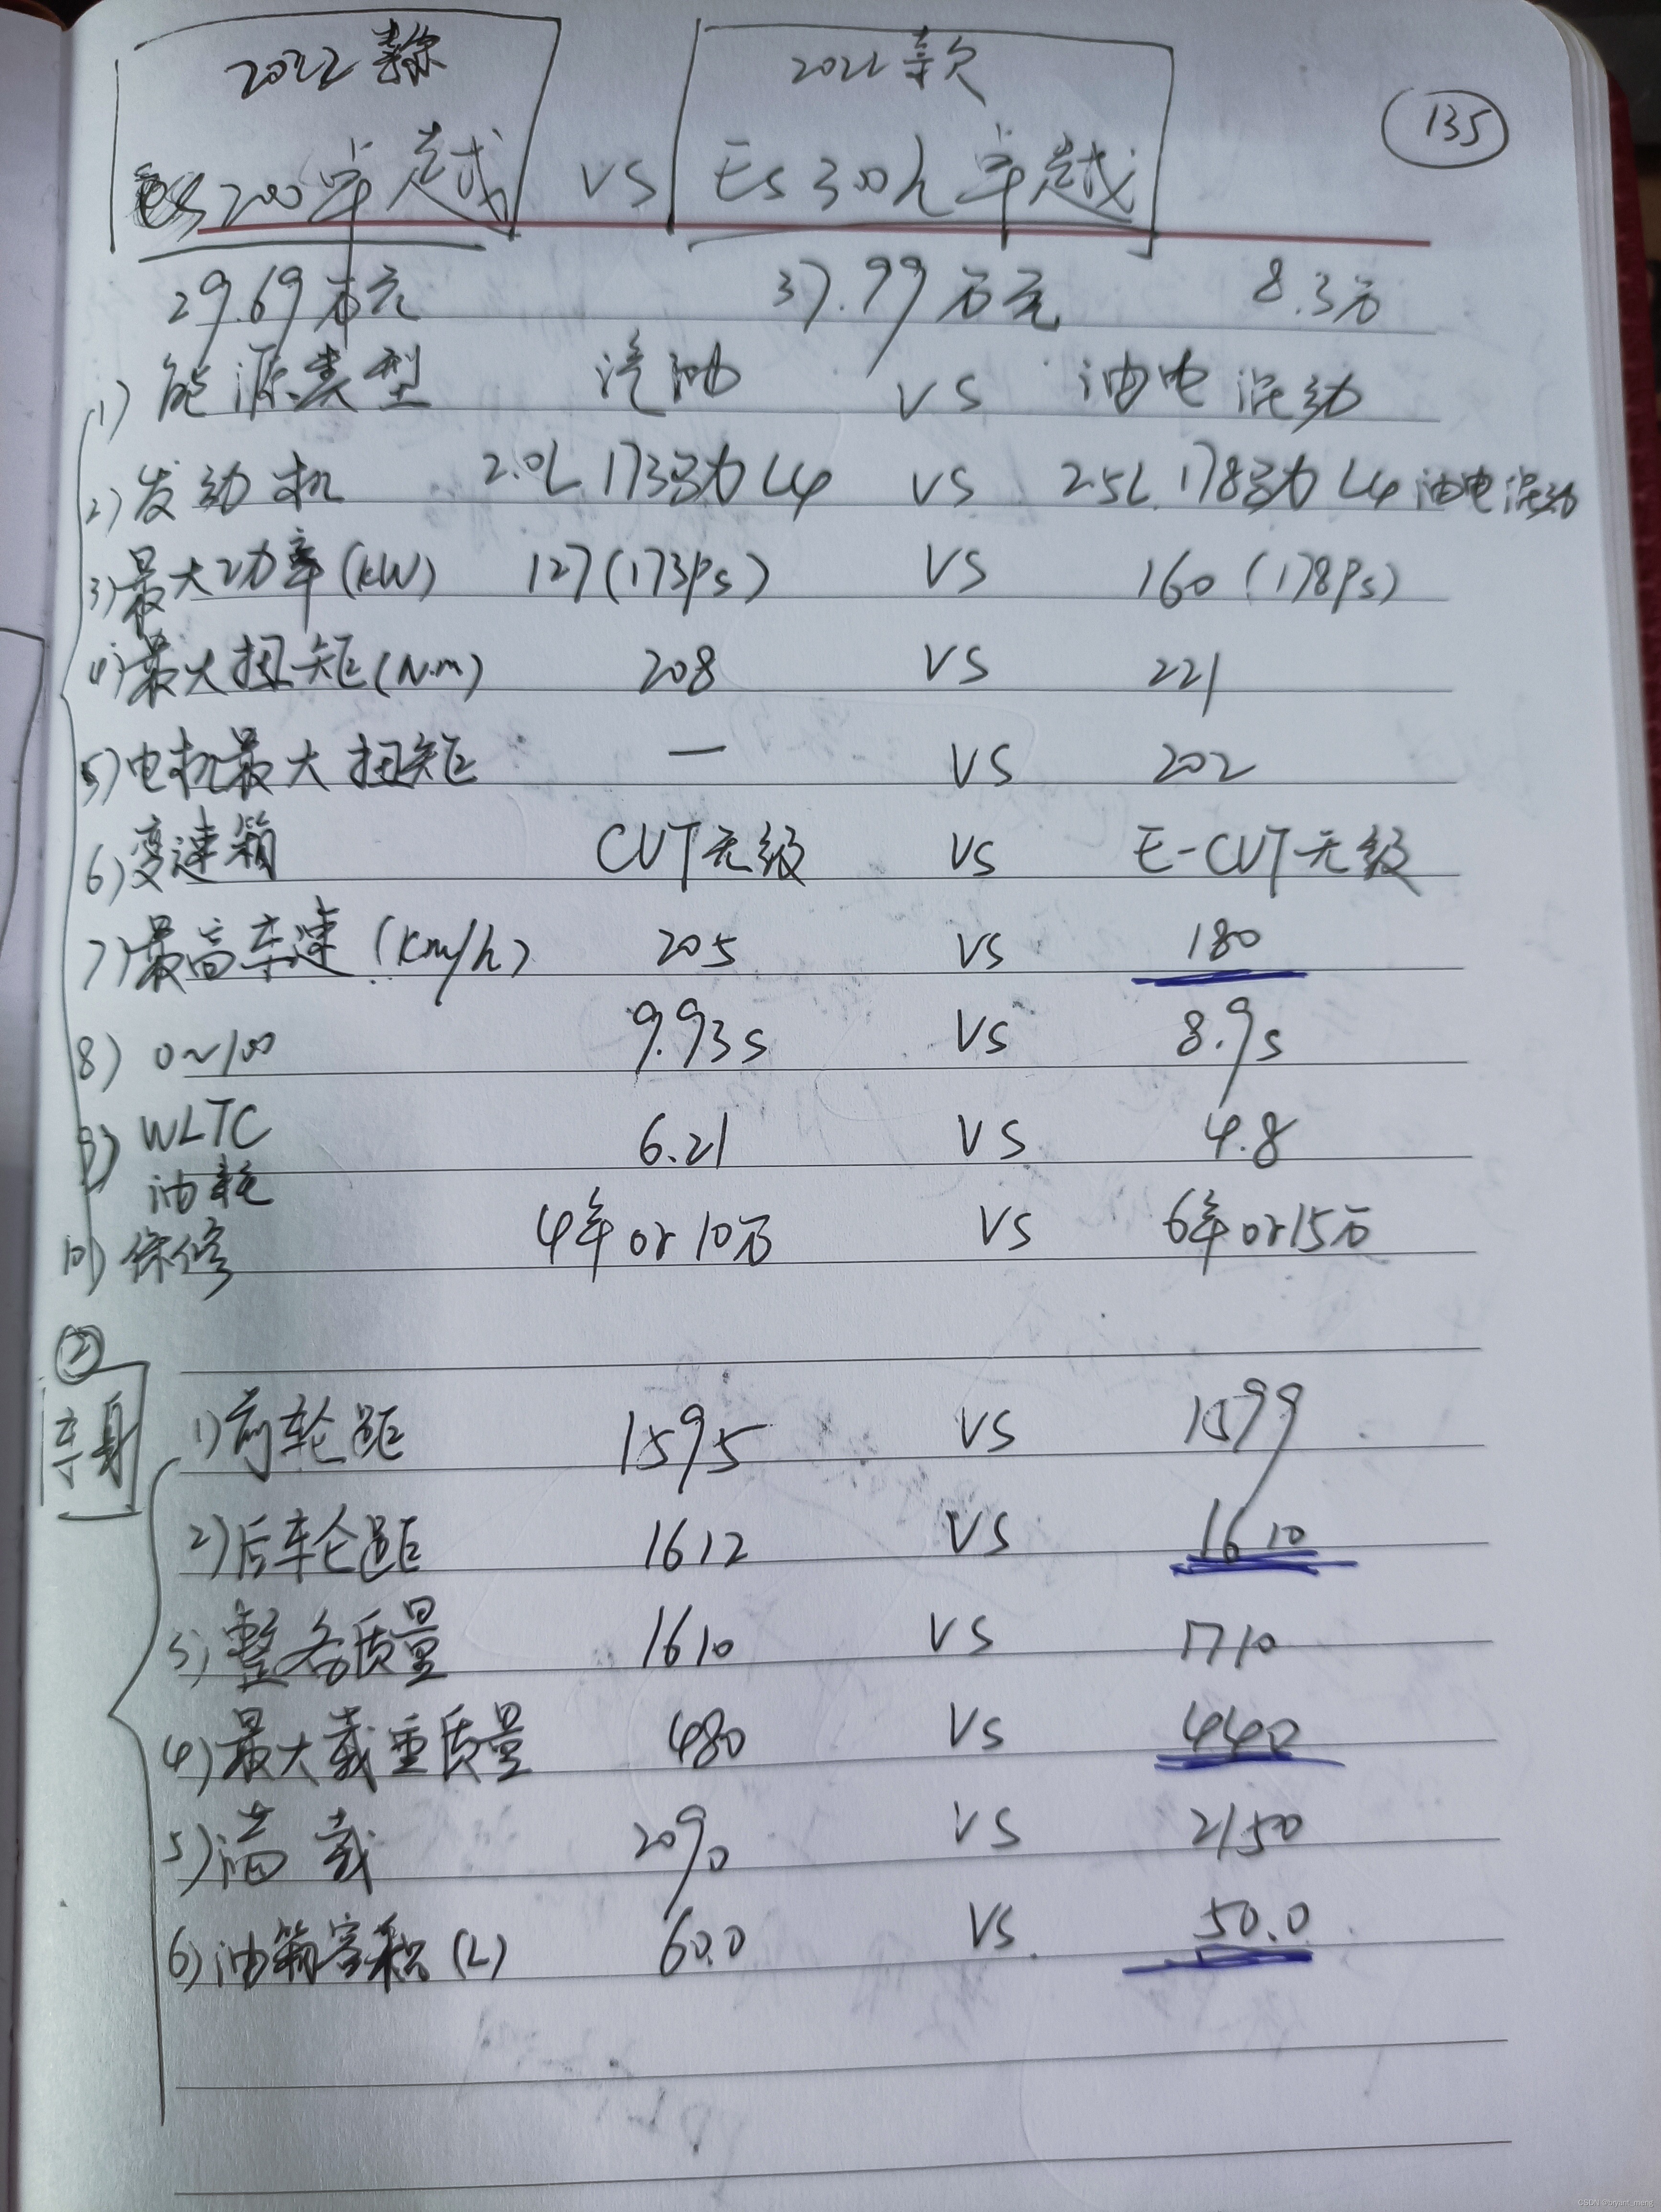 2022款 2022款
135
ES200卓越 VS ES300h卓越
29.69万元 37.99万元 8.3万
1) 能源类型 汽油 VS 油电混动
2) 发动机 2.0L 173马力 L4 VS 2.5L 178马力 L4 油电混动
3) 最大功率(kW) 127(173Ps) VS 160(178Ps)
4) 最大扭矩(N.m) 208 VS 221
5) 电机最大扭矩 — VS 202
6) 变速箱 CVT无级 VS E-CVT无级
7) 最高车速 (km/h) 205 VS 180
8) 0~100 9.93s VS 8.9s
9) WLTC 6.21 VS 4.8
油耗
10) 保修 4年or10万 VS 6年or15万
②
车身
1) 前轮距 1595 VS 1599
2) 后车轮距 1612 VS 1610
3) 整备质量 1610 VS 1710
4) 最大载重质量 480 VS 440
5) 满载 2090 VS 2150
6) 油箱容积(L) 60.0 VS 50.0
CSDN @bryant_meng